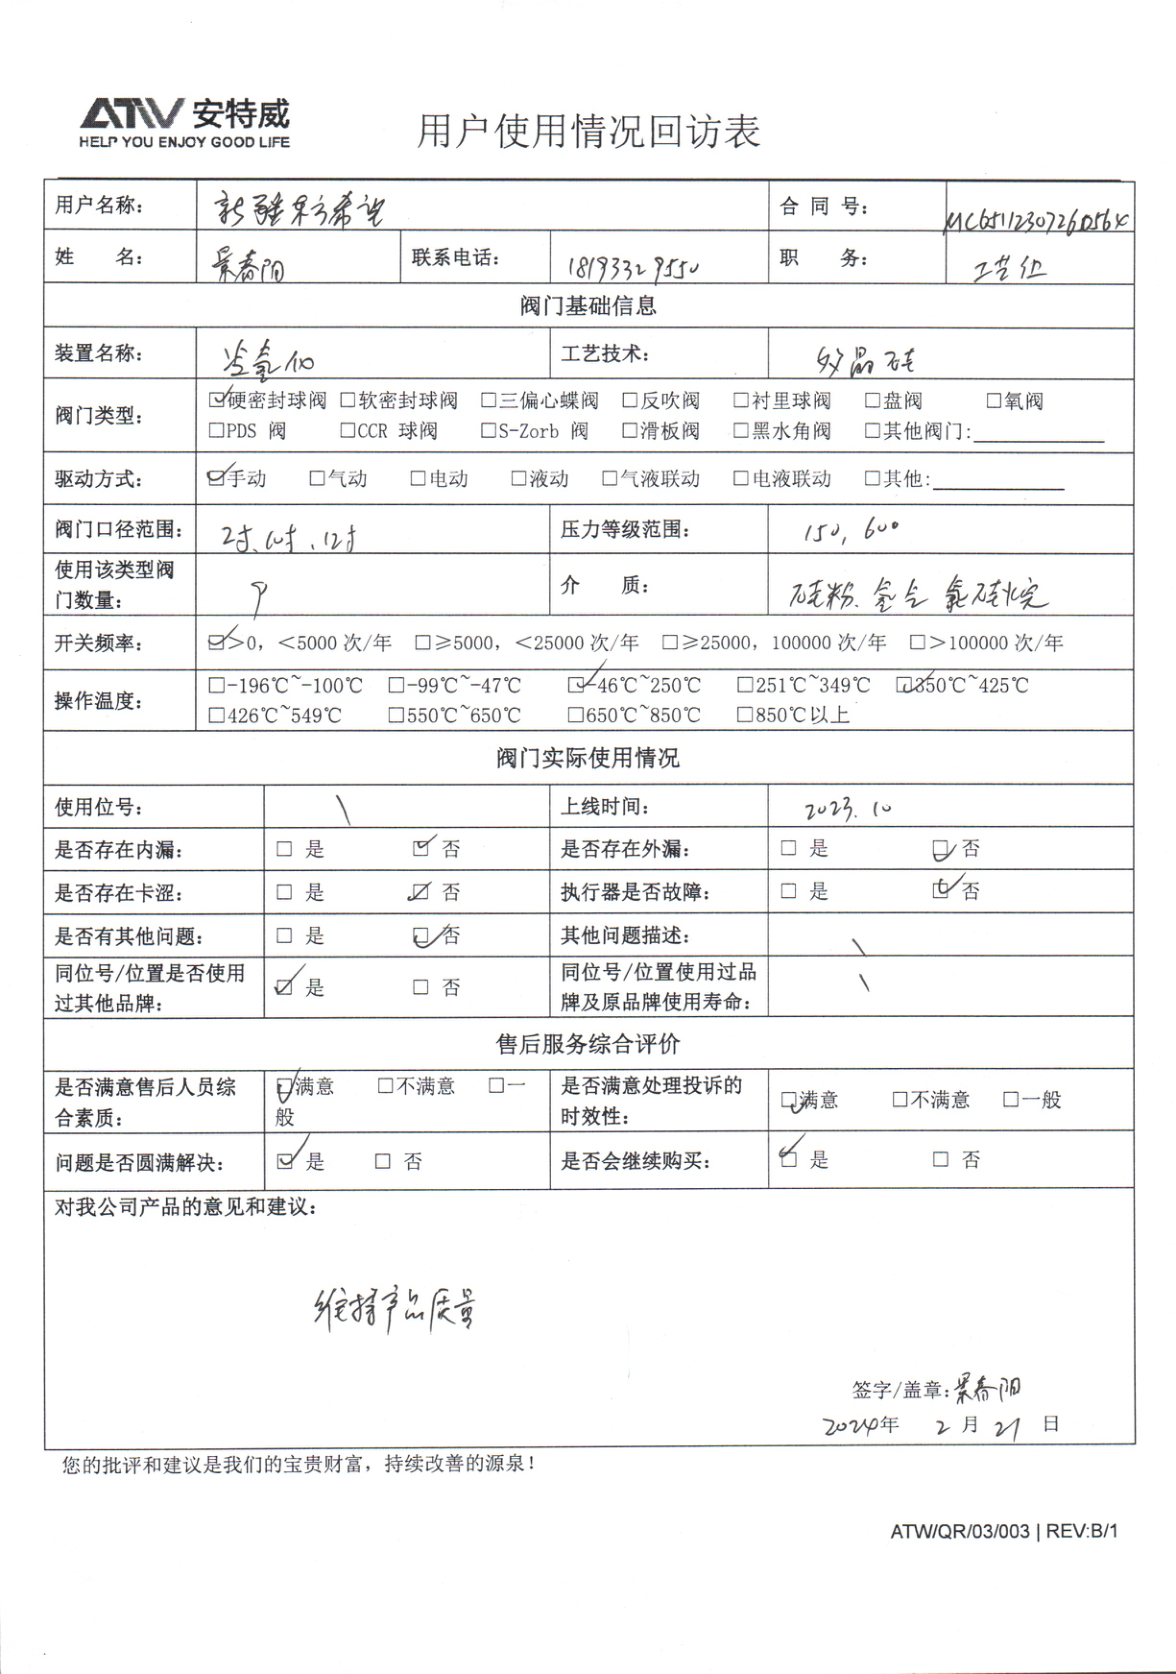 ATW 安特威
HELP YOU ENJOY GOOD LIFE
用户使用情况回访表
用户名称: 新疆东方希望 合 同 号: MC65112307260564
姓 名: 景春阳 联系电话: 18193329550 职 务: 工艺
阀门基础信息
装置名称: 冷氢化 工艺技术: 多晶硅
阀门类型: ☑硬密封球阀 □软密封球阀 □三偏心蝶阀 □反吹阀 □衬里球阀 □盘阀 □氧阀
□PDS 阀 □CCR 球阀 □S-Zorb 阀 □滑板阀 □黑水角阀 □其他阀门:
驱动方式: ☑手动 □气动 □电动 □液动 □气液联动 □电液联动 □其他:
阀门口径范围: 2寸、10寸、12寸 压力等级范围: 150, 600
使用该类型阀
门数量: 9 介 质: 硅粉、氢气 氯硅烷
开关频率: ☑>0, <5000 次/年 □≥5000, <25000 次/年 □≥25000, 100000 次/年 □>100000 次/年
操作温度: □-196℃~-100℃ □-99℃~-47℃ ☑-46℃~250℃ □251℃~349℃ ☑350℃~425℃
□426℃~549℃ □550℃~650℃ □650℃~850℃ □850℃以上
阀门实际使用情况
使用位号: \ 上线时间: 2023.10
是否存在内漏: □ 是 ☑ 否 是否存在外漏: □ 是 ☑ 否
是否存在卡涩: □ 是 ☑ 否 执行器是否故障: □ 是 ☑ 否
是否有其他问题: □ 是 ☑ 否 其他问题描述: \
同位号/位置是否使用
过其他品牌: ☑ 是 □ 否
同位号/位置使用过品
牌及原品牌使用寿命: \
售后服务综合评价
是否满意售后人员综
合素质: ☑满意 □不满意 □一
般
是否满意处理投诉的
时效性: ☑满意 □不满意 □一般
问题是否圆满解决: ☑ 是 □ 否 是否会继续购买: ☑ 是 □ 否
对我公司产品的意见和建议:
维持产品质量
签字/盖章: 景春阳
2024年 2 月 21 日
您的批评和建议是我们的宝贵财富, 持续改善的源泉!
ATW/QR/03/003 | REV:B/1